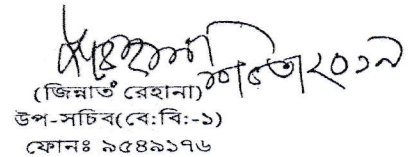 (জিন্নাত রেহানা)
উপ-সচিব(বে:বি:-১)
ফোনঃ ৯৫৪৯১৭৬